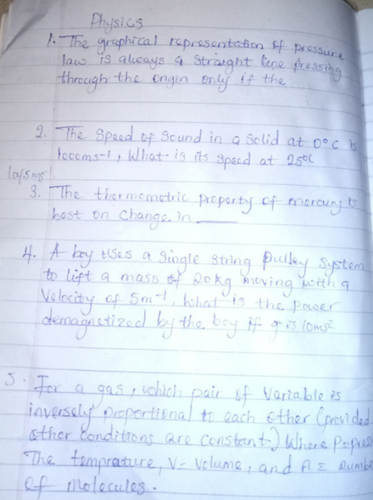 Physics
1. The graphical representation of pressure
law is always a straight line pressing
through the origin only if the
2. The Speed of Sound in a Solid at 0°C is
1000ms-1, What is its speed at 25°C
3. The thermometric property of mercury is
best on Change in ____
4. A boy uses a Single String Pulley System
to lift a mass of 20kg moving with a
Velocity of 5m-1, What is the power
demagnetized by the boy if g is 10ms2
5. For a gas, which pair of Variable is
inversely proportional to each other (provided
other conditions are constant) Where P=press
The temprature, V- Volume, and n = number
of molecules.